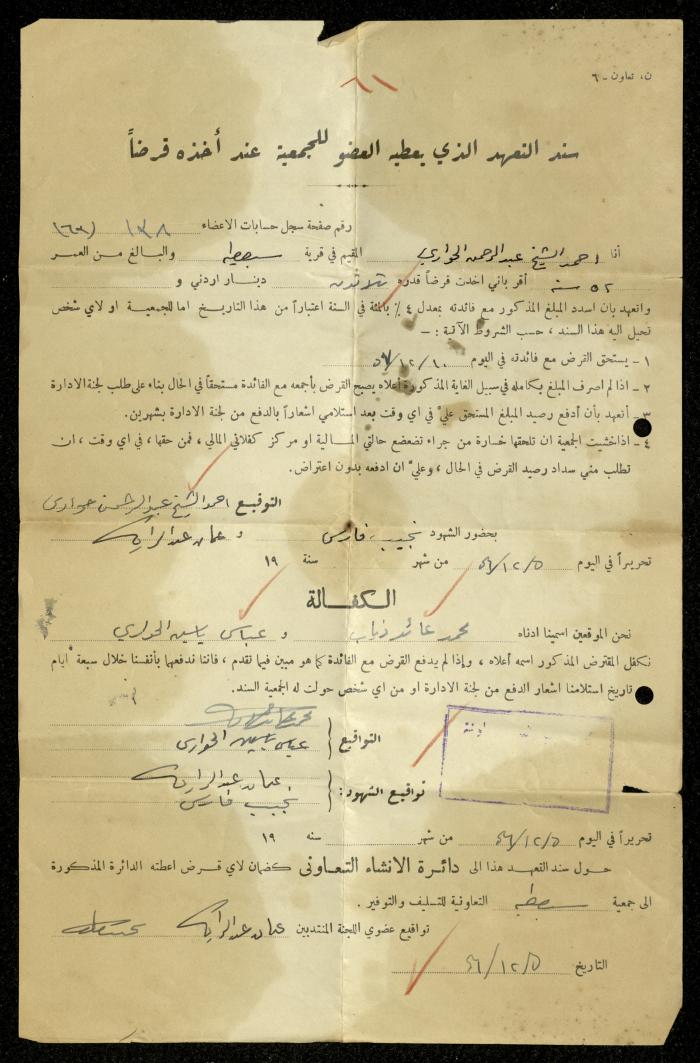 ن، تعاون - ٦
٦١
سند التعهد الذي يعطيه العضو للجمعية عند أخذه قرضاً
رقم صفحة سجل حسابات الاعضاء ١٣٨
أنا احمد الشيخ عبدالرحمن الحواري المقيم في قرية سبسطية والبالغ من العمر
٥٢ سنة أقر باني اخذت قرضاً قدره ثلاثون دينار اردني و
واتعهد بان اسدد المبلغ المذكور مع فائدته بمعدل ٤ ٪ بالمئة في السنة اعتباراً من هذا التاريخ اما للجمعية او لاي شخص
تحيل اليه هذا السند ، حسب الشروط الآتية : —
١ - يستحق القرض مع فائدته في اليوم ١٠/١٢/٥٧
٢ - اذا لم اصرف المبلغ بكامله في سبيل الغاية المذكورة اعلاه يصبح القرض بأجمعه مع الفائدة مستحقاً في الحال بناء على طلب لجنة الادارة
٣ - أتعهد بأن أدفع رصيد المبلغ المستحق عليّ في اي وقت بعد استلامي اشعاراً بالدفع من لجنة الادارة بشهرين.
٤ - اذا خشيت الجمعية ان تلحقها خسارة من جراء تضعضع حالتي المالية او مركز كفلائي المالي ، فمن حقها ، في اي وقت ، ان
تطلب مني سداد رصيد القرض في الحال ، وعليّ ان ادفعه بدون اعتراض.
التوقيع احمد الشيخ عبدالرحمن حواري
بحضور الشهود نجيب فارس و عثمان عبد
تحريراً في اليوم ٥/١٢/٥٦ من شهر سنة ١٩
الكفالة
نحن الموقعين اسمينا ادناه محمد عائد ذياب و عباس ياسين الحواري
نكفل المقترض المذكور اسمه أعلاه ، وإذا لم يدفع القرض مع الفائدة كما هو مبين فيما تقدم ، فاننا ندفعها بأنفسنا خلال سبعة أيام
تاريخ استلامنا اشعار الدفع من لجنة الادارة او من اي شخص حولت له الجمعية السند.
التواقيع
عباس ياسين الحواري
تواقيع الشهود: عثمان عبد
نجيب فارس
تحريراً في اليوم ٥/١٢/٥٦ من شهر سنه ١٩
حول سند التعهد هذا الى دائرة الانشاء التعاونى كضمان لاي قرض اعطته الدائرة المذكورة
الى جمعية سبسطية التعاونية للتسليف والتوفير .
تواقيع عضوي اللجنة المنتدبين عثمان عبد
التاريخ ٥/١٢/٥٦